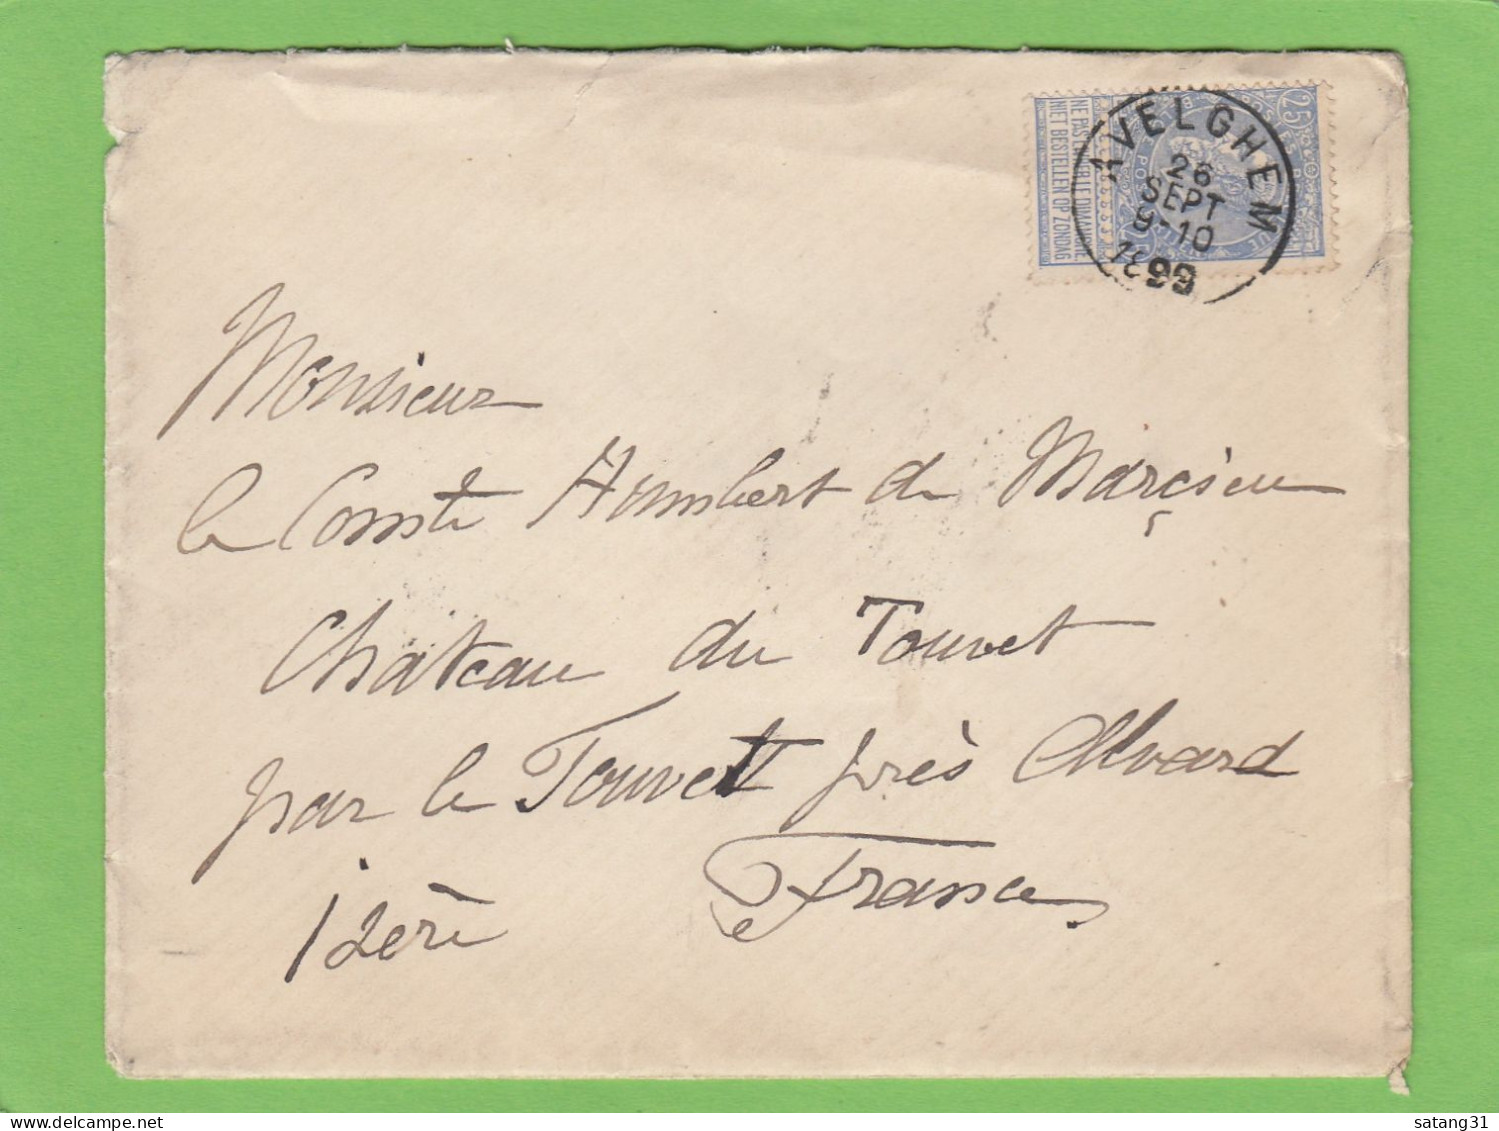 AVELGHEM
26
SEPT
9-10
1899
25
NE PAS LIVRER LE DIMANCHE
NIET BESTELLEN OP ZONDAG
Monsieur
le Comte Humbert de Marçieu
Château du Touvet
par le Touvet près Allevard
Isère France
satang31